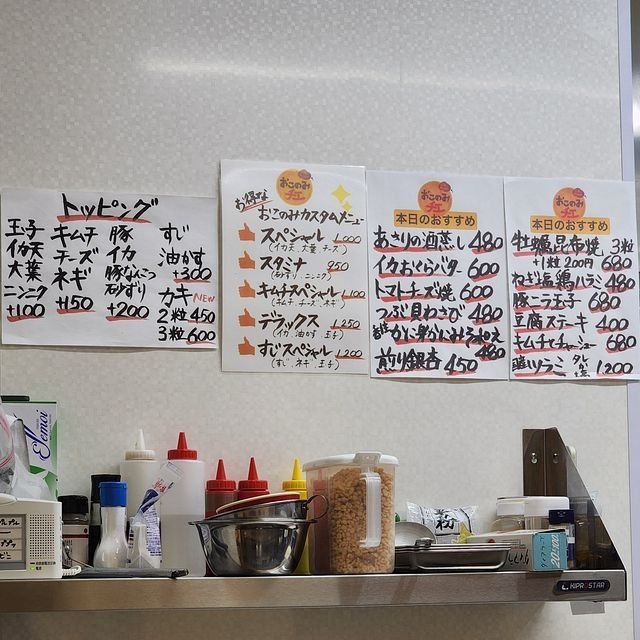 トッピング
玉子
イカ天
大葉
ニンニク
+100
キムチ
チーズ
ネギ
+150
豚
イカ
豚なんこつ
砂ずり
+200
すじ
油かす
+300
カキ NEW
2粒 450
3粒 600
おこのみ
チエ
お得な
おこのみカスタムメニュー
スペシャル 1,000
(イカ天 大葉 チーズ)
スタミナ 950
(砂ずり ニンニク)
キムチスペシャル 1,100
(キムチ チーズ ネギ)
デラックス 1,250
(イカ 油かす 玉子)
すじスペシャル 1,200
(すじ ネギ 玉子)
おこのみ
チエ
本日のおすすめ
あさりの酒蒸し 480
イカおくらバター 600
トマトチーズ焼 600
つぶ貝わさび 480
かに身かにみそ和え 480
煎り銀杏 450
おこのみ
チエ
本日のおすすめ
牡蠣昆布焼 3粒
+1粒 200円 680
ねぎ塩鶏ハラミ 580
豚ニラ玉子 680
豆腐ステーキ 400
キムチチャーシュー 680
1,200
KIPROSTAR